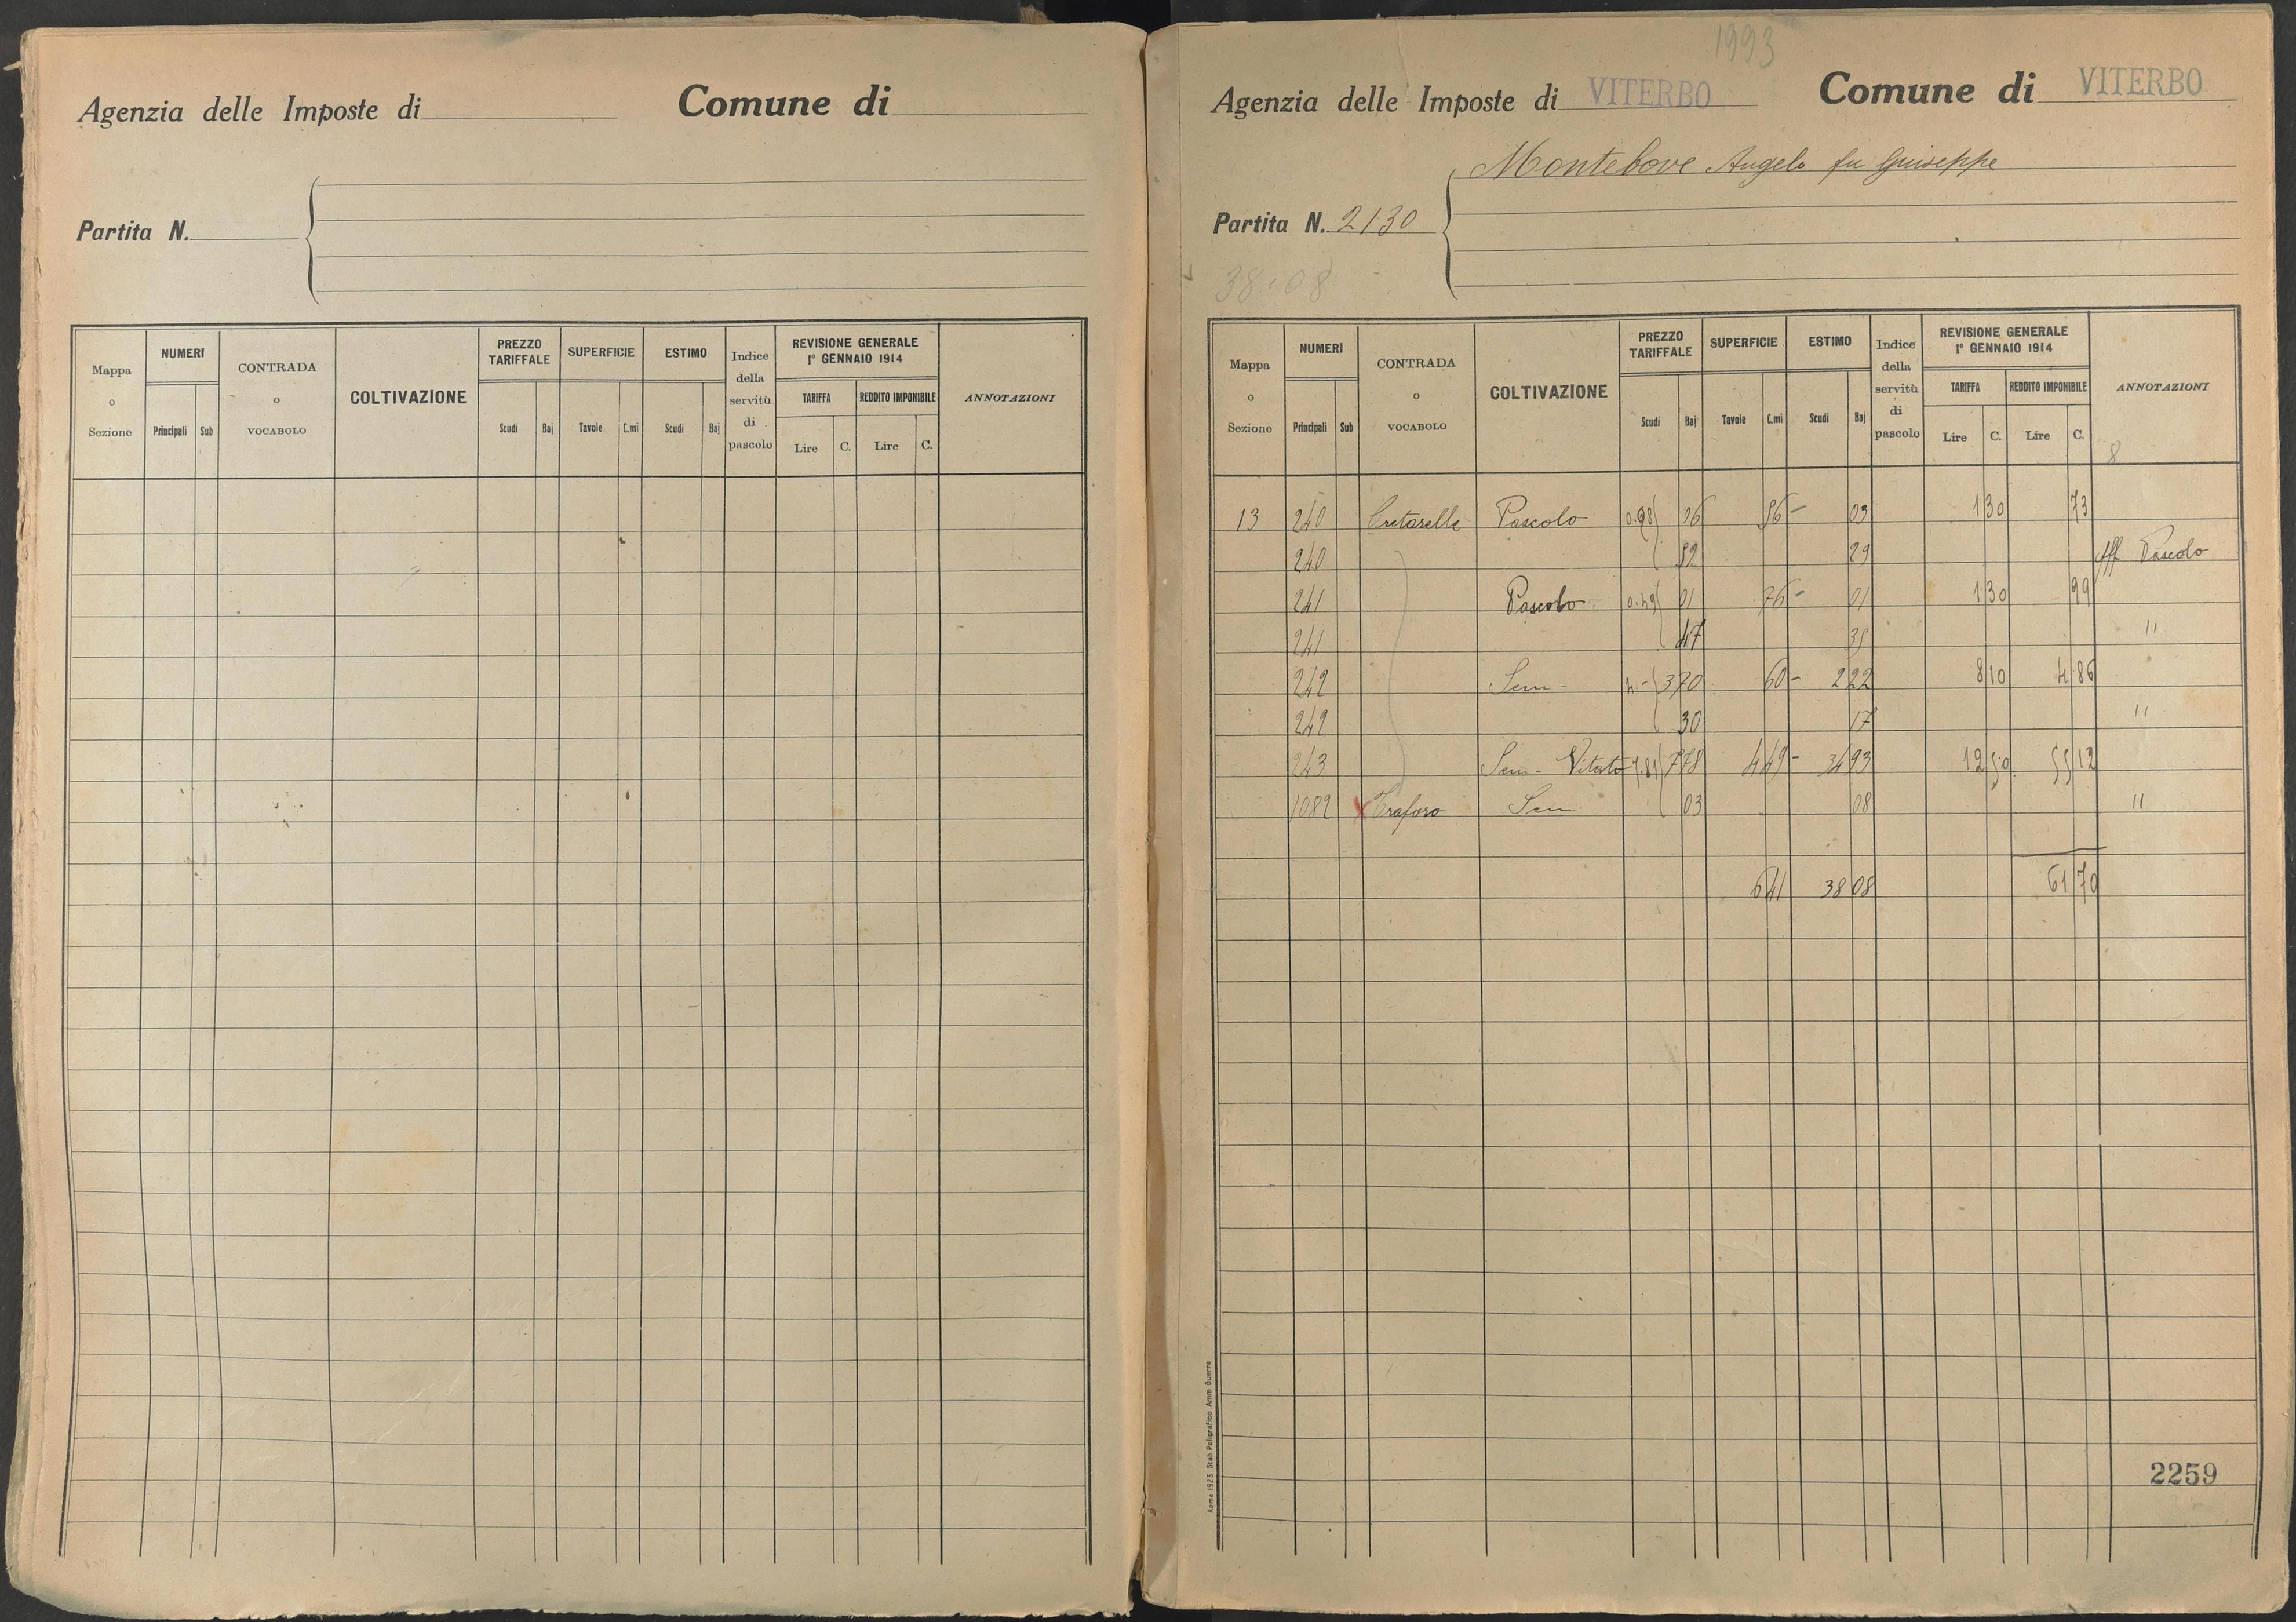 Agenzia delle Imposte di Comune di
Partita N.
Mappa o Sezione NUMERI Principali Sub CONTRADA o VOCABOLO COLTIVAZIONE PREZZO TARIFFALE Scudi Baj SUPERFICIE Tavole C.mi ESTIMO Scudi Baj Indice della servitù di pascolo REVISIONE GENERALE 1° GENNAIO 1914 TARIFFA Lire C. REDDITO IMPONIBILE Lire C. ANNOTAZIONI
1993
Agenzia delle Imposte di VITERBO Comune di VITERBO
Montebove Angelo fu Giuseppe
Partita N. 2130
38.08
Mappa o Sezione NUMERI Principali Sub CONTRADA o VOCABOLO COLTIVAZIONE PREZZO TARIFFALE Scudi Baj SUPERFICIE Tavole C.mi ESTIMO Scudi Baj Indice della servitù di pascolo REVISIONE GENERALE 1° GENNAIO 1914 TARIFFA Lire C. REDDITO IMPONIBILE Lire C. ANNOTAZIONI
8
13 240 Pascolo 06 56 - 03 1 30 73
240 52 29 Aff Pascolo
241 Pascolo 0.49 01 76 - 01 1 30 99
241 47 35 "
242 Sem - 4.- 3 70 60 - 2 22 8 10 4 86
242 30 17 "
243 Sem - Vitato 7.81 7 78 4 49 - 34 93 12 50 55 12
1082 x Traforo Sem 03 08 "
6 41 38 08 61 70
Roma 1923 Stab. Poligrafico Amm. Guerra
2259